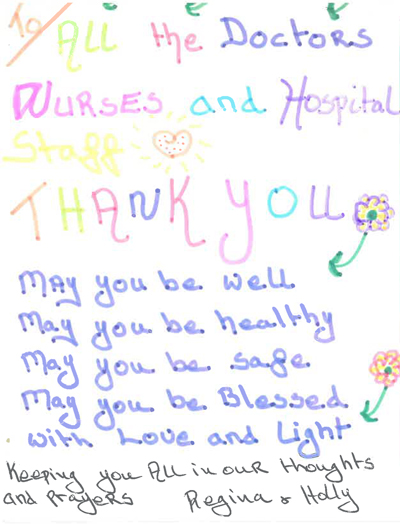 To All the Doctors
Nurses and Hospital
Staff
THANK YOU
May you be well
May you be healthy
May you be safe
May you be Blessed
with Love and Light
Keeping you All in our thoughts
and Prayers Regina & Holly